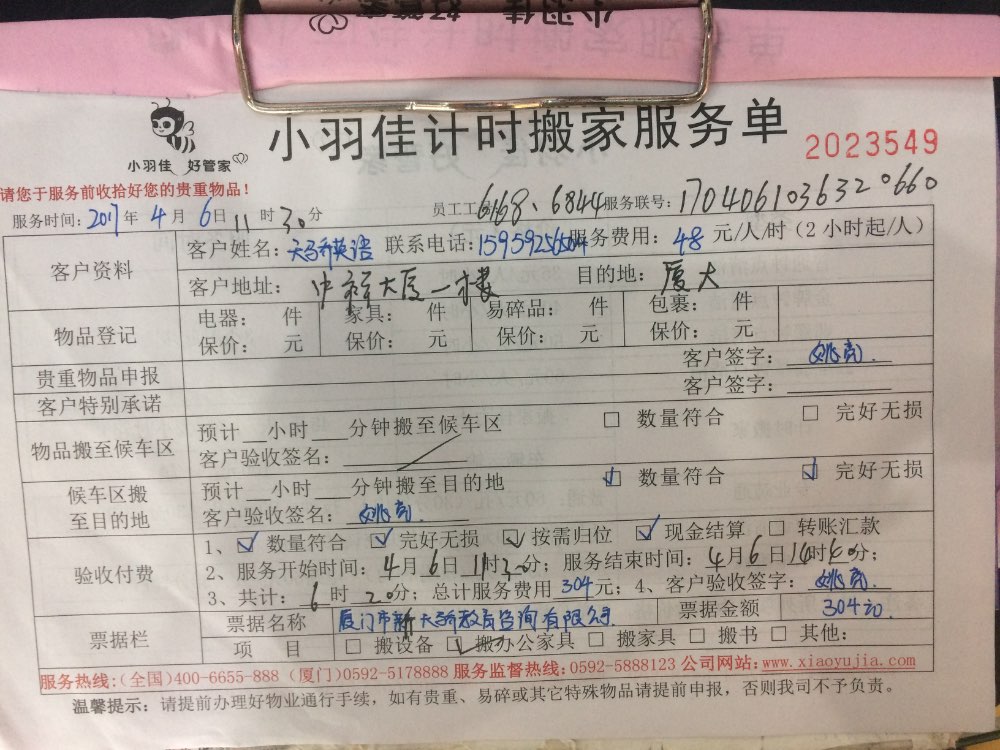 小羽佳 好管家
小羽佳计时搬家服务单
2023549
请您于服务前收拾好您的贵重物品！
服务时间：2017年4月6日11时30分 员工工号 6168、6844 服务联号：
客户资料
客户姓名： 联系电话： 服务费用：48元/人/时（2小时起/人）
客户地址：中祥大厦一楼 目的地：厦大
物品登记
电器： 件 家具： 件 易碎品： 件 包裹： 件
保价： 元 保价： 元 保价： 元 保价： 元
贵重物品申报 客户签字：姚亮.
客户特别承诺 客户签字：
物品搬至候车区
预计__小时___分钟搬至候车区 □ 数量符合 □ 完好无损
客户验收签名：
候车区搬至目的地
预计__小时___分钟搬至目的地 ☑ 数量符合 ☑ 完好无损
客户验收签名：姚亮.
验收付费
1、☑ 数量符合 ☑ 完好无损 ☑ 按需归位 ☑ 现金结算 □ 转账汇款
2、服务开始时间：4月6日11时30分；服务结束时间：4月6日 时 分；
3、共计：6时20分；总计服务费用304元；4、客户验收签字：姚亮.
票据栏
票据名称 厦门市新天骄教育咨询有限公司. 票据金额 304元
项 目 □ 搬设备 ☑ 搬办公家具 □ 搬家具 □ 搬书 □ 其他：
服务热线：（全国）400-6655-888（厦门）0592-5178888 服务监督热线：0592-5888123 公司网站：www.xiaoyujia.com
温馨提示：请提前办理好物业通行手续，如有贵重、易碎或其它特殊物品请提前申报，否则我司不予负责。